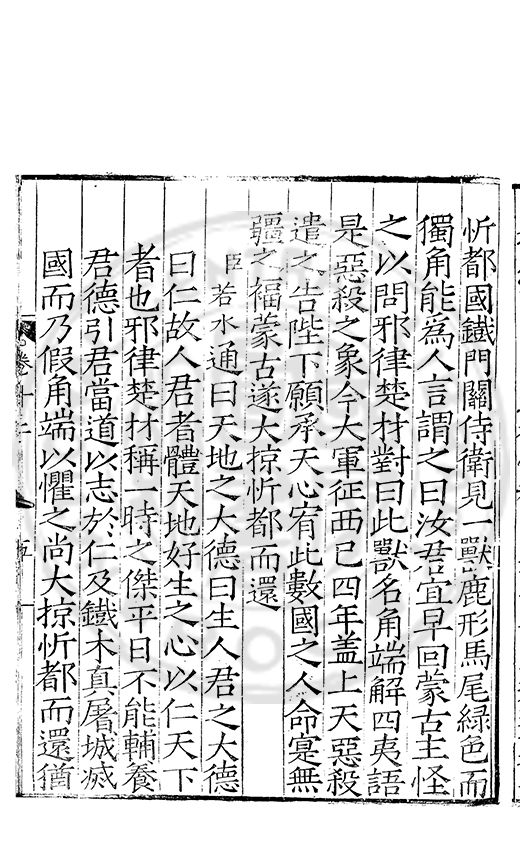 忻都國鐵門關侍衛見一獸鹿形馬尾綠色而
獨角能爲人言謂之曰汝君宜早回蒙古主怪
之以問邪律楚材對曰此獸名角端解四夷語
是惡殺之象今大軍征西已四年盖上天惡殺
遣之告陛下願承天心宥此數國之人命寔無
疆之福蒙古遂大掠忻都而還
臣若水通曰天地之大德曰生人君之大德
曰仁故人君者體天地好生之心以仁天下
者也邪律楚材稱一時之傑平日不能輔養
君德引君當道以志於仁及鐵木真屠城滅
國而乃假角端以懼之尚大掠忻都而還猶